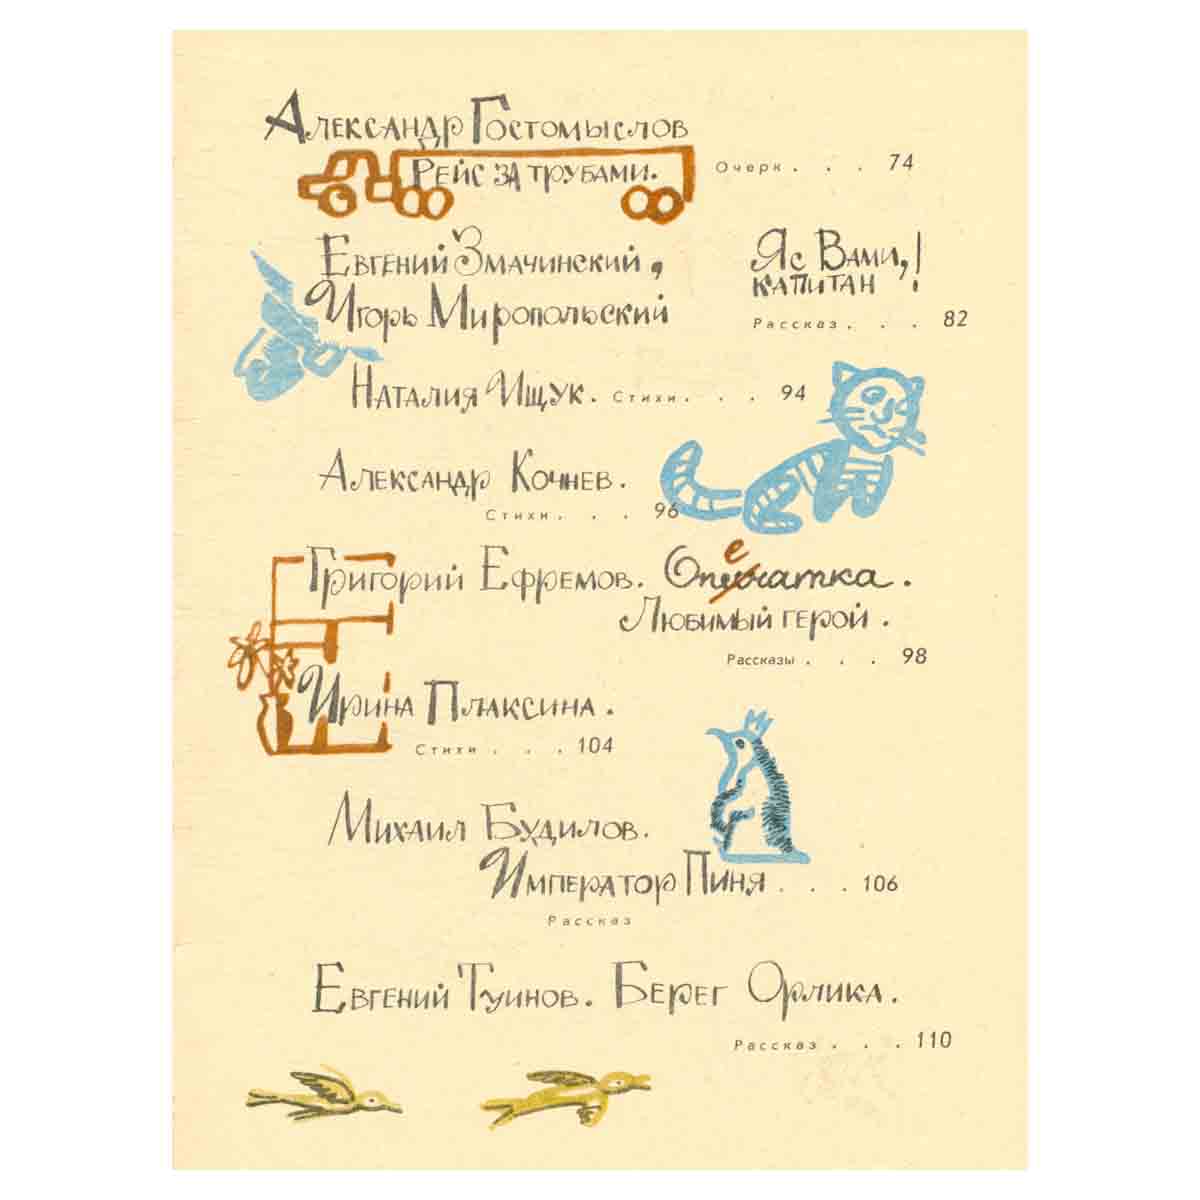 Александр Гостомыслов
Рейс за трубами. Очерк . . . 74
Евгений Змачинский,
Игорь Миропольский
Я с Вами,
капитан!
Рассказ . . . 82
Наталия Ищук. Стихи . . . 94
Александр Кочнев.
Стихи . . . 96
Григорий Ефремов. Опечатка.
Любимый герой.
Рассказы . . . 98
Ирина Плаксина.
Стихи . . . 104
Михаил Будилов.
Император Пиня . . . 106
Рассказ
Евгений Туинов. Берег Орлика.
Рассказ . . . 110